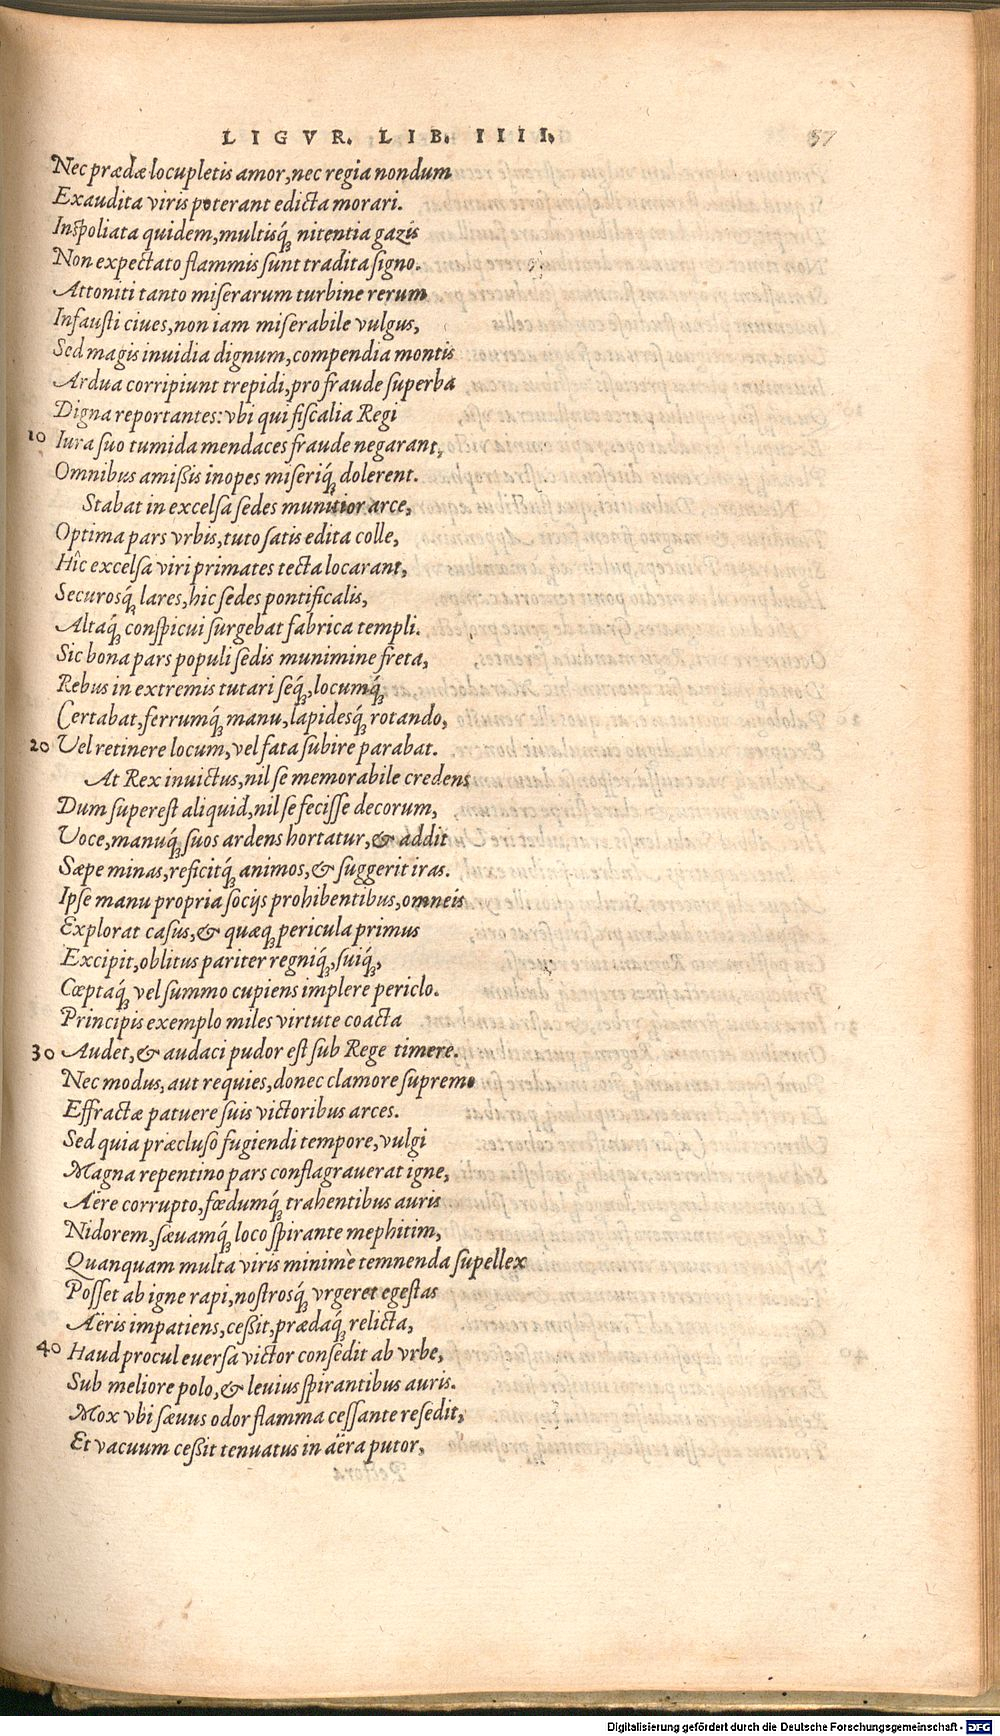 LIGVR. LIB. IIII. 57
Nec prædæ locupletis amor, nec regia nondum
Exaudita viris poterant edicta morari.
Inspoliata quidem, multisq́; nitentia gazis
Non expectato flammis sunt tradita signo.
Attoniti tanto miserarum turbine rerum
Infausti ciues, non iam miserabile vulgus,
Sed magis inuidia dignum, compendia montis
Ardua corripiunt trepidi, pro fraude superba
Digna reportantes: vbi qui fiscalia Regi
10 Iura suo tumida mendaces fraude negarant,
Omnibus amißis inopes miseriq́; dolerent.
Stabat in excelsa sedes munitior arce,
Optima pars vrbis, tuto satis edita colle,
Hîc excelsa viri primates tecta locarant,
Securosq́; lares, hic sedes pontificalis,
Altaq́; conspicui surgebat fabrica templi.
Sic bona pars populi sedis munimine freta,
Rebus in extremis tutari seq́;, locumq́;
Certabat, ferrumq́; manu, lapidesq́; rotando,
20 Vel retinere locum, vel fata subire parabat.
At Rex inuictus, nil se memorabile credens
Dum superest aliquid, nil se fecisse decorum,
Voce, manuq́; suos ardens hortatur, & addit
Sæpe minas, reficitq́; animos, & suggerit iras.
Ipse manu propria socijs prohibentibus, omneis
Explorat casus, & quæq; pericula primus
Excipit, oblitus pariter regniq́;, suiq́;,
Cœptaq́; vel summo cupiens implere periclo.
Principis exemplo miles virtute coacta
30 Audet, & audaci pudor est sub Rege timere.
Nec modus, aut requies, donec clamore supremo
Effractæ patuere suis victoribus arces.
Sed quia præcluso fugiendi tempore, vulgi
Magna repentino pars conflagrauerat igne,
Aëre corrupto, fœdumq́; trahentibus auris
Nidorem, sæuamq́; loco spirante mephitim,
Quanquam multa viris minimè temnenda supellex
Posset ab igne rapi, nostrosq́; vrgeret egestas
Aëris impatiens, ceßit, prædaq́; relicta,
40 Haud procul euersa victor consedit ab vrbe,
Sub meliore polo, & leuius spirantibus auris.
Mox vbi sæuus odor flamma cessante resedit,
Et vacuum ceßit tenuatus in aëra putor,
Digitalisierung gefördert durch die Deutsche Forschungsgemeinschaft - DFG